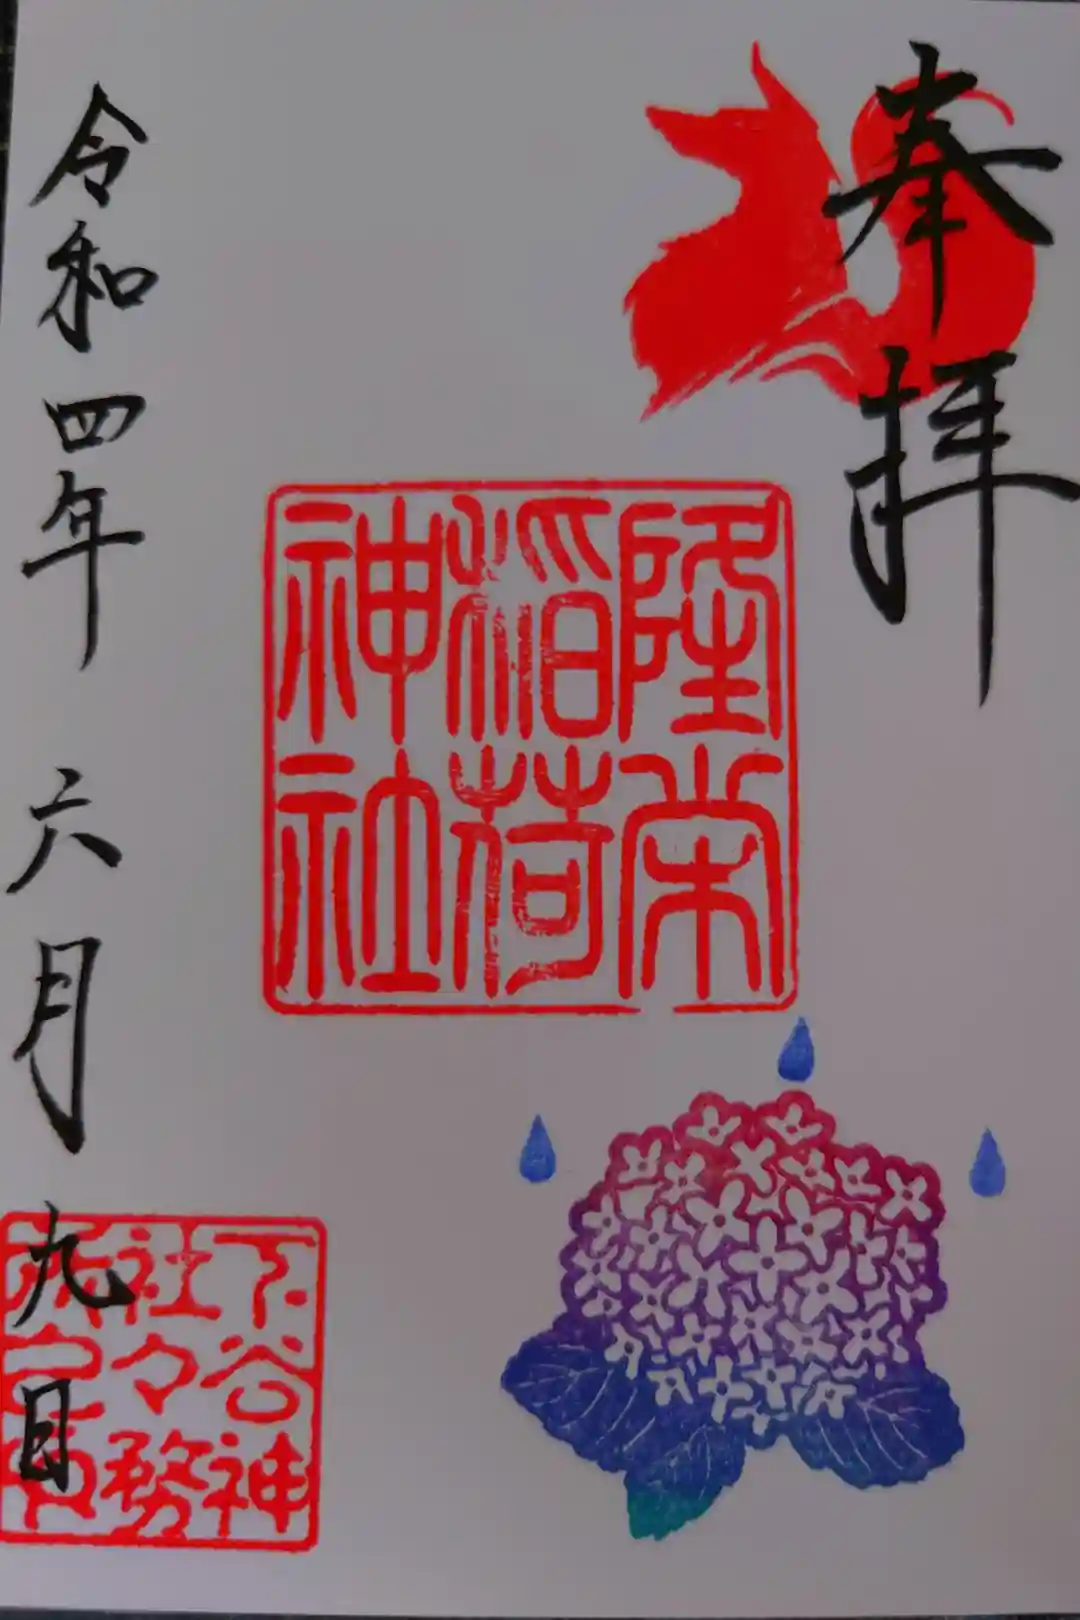 奉拝
隆栄
稲荷
神社
令和四年 六月 九日
下谷神
社々務